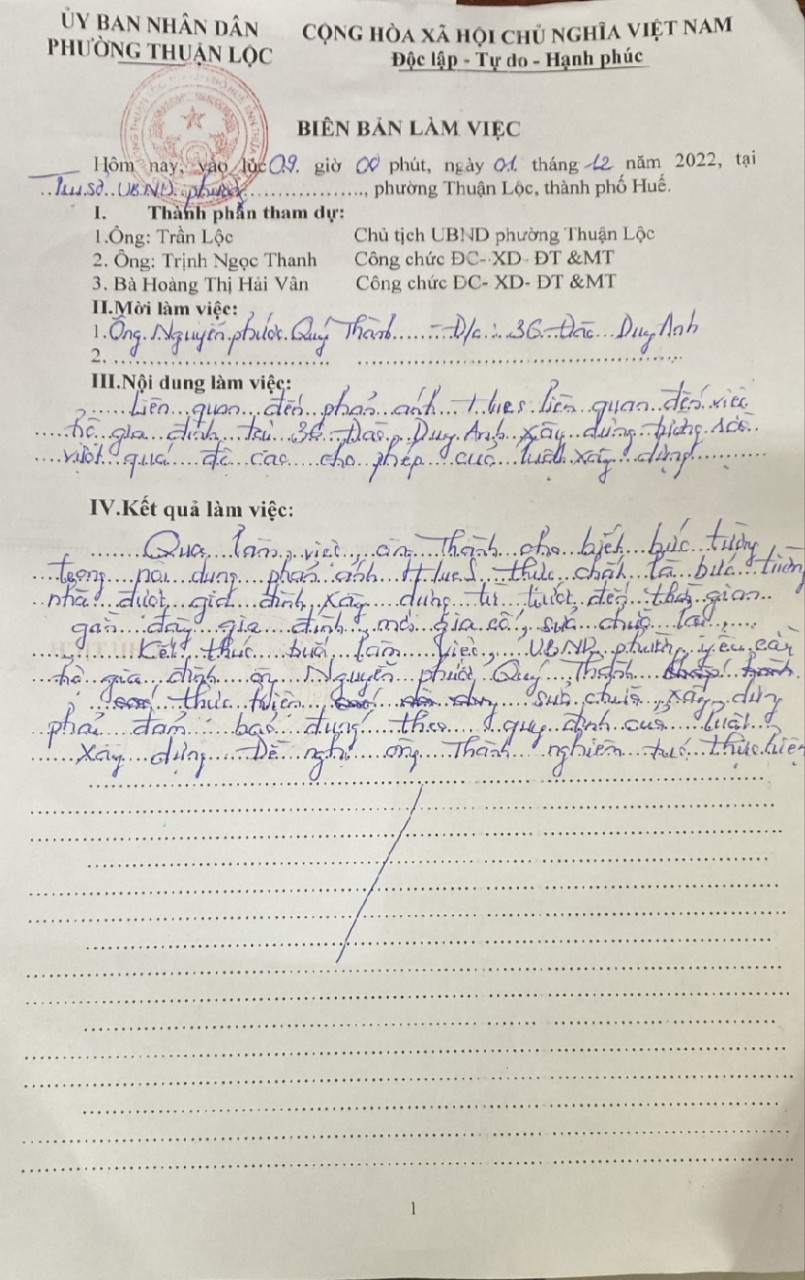 ỦY BAN NHÂN DÂN
PHƯỜNG THUẬN LỘC
CỘNG HÒA XÃ HỘI CHỦ NGHĨA VIỆT NAM
Độc lập - Tự do - Hạnh phúc
BIÊN BẢN LÀM VIỆC
Hôm nay, vào lúc 09 giờ 00 phút, ngày 01 tháng 12 năm 2022, tại
Trụ sở UBND phường, phường Thuận Lộc, thành phố Huế.
I. Thành phần tham dự:
1.Ông: Trần Lộc Chủ tịch UBND phường Thuận Lộc
2. Ông: Trịnh Ngọc Thanh Công chức ĐC- XD- ĐT &MT
3. Bà Hoàng Thị Hải Vân Công chức ĐC- XD- ĐT &MT
II.Mời làm việc:
1.Ông Nguyễn Phước Quý Thành - Đ/c: 36 Đào Duy Anh
2.
III.Nội dung làm việc:
Liên quan đến phản ánh HueS liên quan đến việc
hộ gia đình tại 36 Đào Duy Anh xây dựng tường rào
vượt quá độ cao cho phép của luật xây dựng
IV.Kết quả làm việc:
Qua làm việc, ông Thành cho biết bức tường
trong nội dung phản ánh HueS thực chất là bức tường
nhà được gia đình xây dựng từ trước, đến thời gian
gần đây gia đình mới gia cố, sửa chữa lại.
Kết thúc buổi làm việc, UBND phường yêu cầu
hộ gia đình ông Nguyễn Phước Quý Thành
thực hiện sửa chữa, xây dựng
phải đảm bảo đúng theo quy định của luật
xây dựng. Đề nghị ông Thành nghiêm túc thực hiện
1